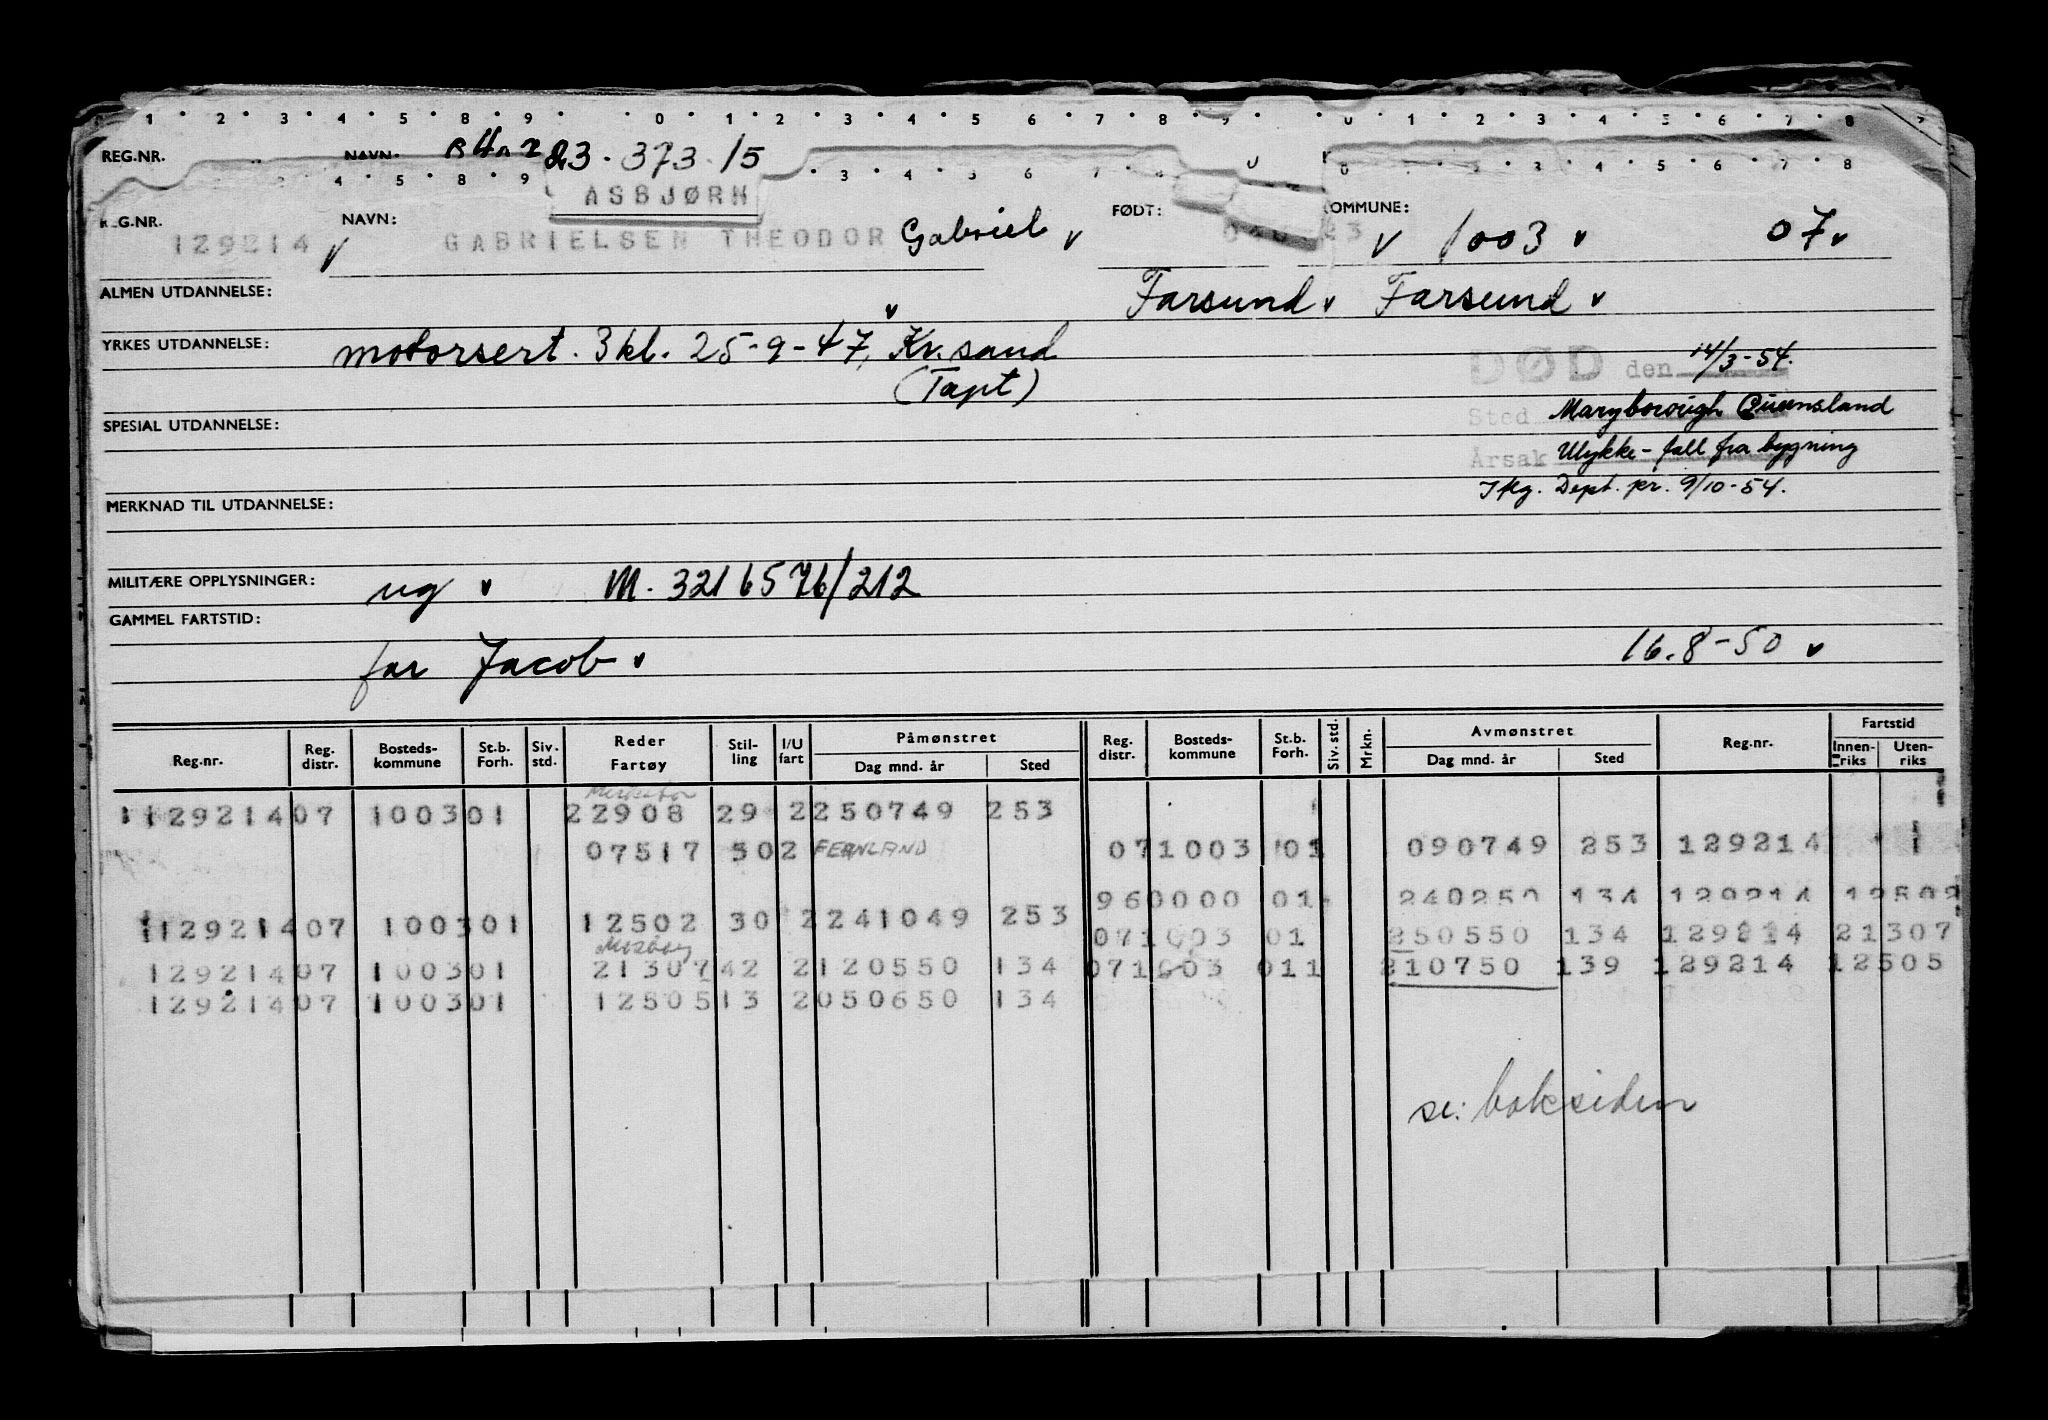 1 2 3 4 5 8 9 0 1 2 3 4 5 6 7 8 9 0 1 2 3 4 5 6 7 8
REG.NR. NAVN: 23.373.15
4 5 8 9 3 4 5 6 7 8 0 0 2 3 5 6 7 8
ASBJØRN
REG.NR. NAVN: FØDT: KOMMUNE:
129214 GABRIELSEN THEODOR Gabriel 23 1003 07
ALMEN UTDANNELSE: Farsund Farsund
YRKES UTDANNELSE: motorsert. 3kl. 25-9-47, Kr.sand
(Tapt)
DØD den 14/3-54.
Sted Maryborough Queensland
SPESIAL UTDANNELSE:
Årsak Ulykke - fall fra bygning
Iflg. Dept. skr. 9/10-54.
MERKNAD TIL UTDANNELSE:
MILITÆRE OPPLYSNINGER: ug M. 3216576/212
GAMMEL FARTSTID:
far Jacob 16.8-50
Reg.nr. Reg. distr. Bosteds-kommune St.b. Forh. Siv. std. Reder Fartøy Stil-ling I/U fart Påmønstret Dag mnd. år Sted Reg. distr. Bosteds-kommune St.b. Forh. Siv. std. Mrkn. Avmønstret Dag mnd. år Sted Reg.nr. Fartstid Innen-riks Uten-riks
129214 07 1003 01 22908 29 2 250749 253
07517 502 FERNLAND 07 1003 01 090749 253 129214
960000 01 240250 134 129214 12502
129214 07 1003 01 12502 30 2 241049 253
07 1003 01 250550 134 129214 21307
129214 07 1003 01 21307 42 2 120550 134 07 1003 011 210750 139 129214 12505
129214 07 1003 01 12505 13 2 050650 134
se: baksiden